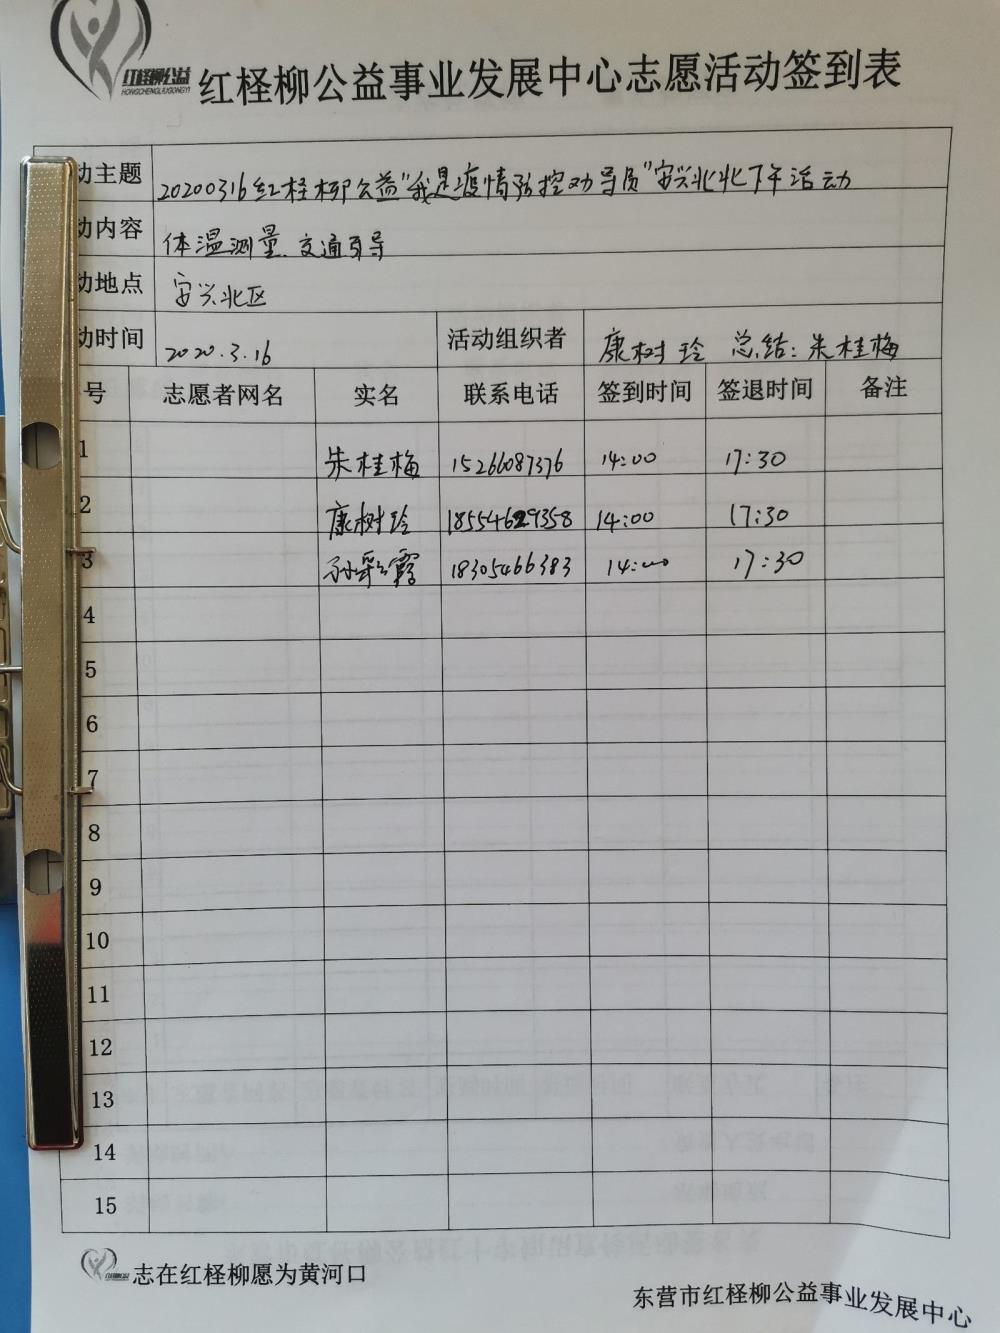 红柽柳公益
HONGCHENGLIUGONGYI
红柽柳公益事业发展中心志愿活动签到表
动主题 20200316红柽柳公益"我是疫情防控劝导员"安兴北北下午活动
动内容 体温测量.交通引导
动地点 安兴北区
动时间 2020.3.16 活动组织者 康树玲 总结:朱桂梅
号 志愿者网名 实名 联系电话 签到时间 签退时间 备注
1 朱桂梅 15266087376 14:00 17:30
2 康树玲 18554629358 14:00 17:30
3 孙彩霞 18305466383 14:00 17:30
4
5
6
7
8
9
10
11
12
13
14
15
志在红柽柳愿为黄河口
东营市红柽柳公益事业发展中心